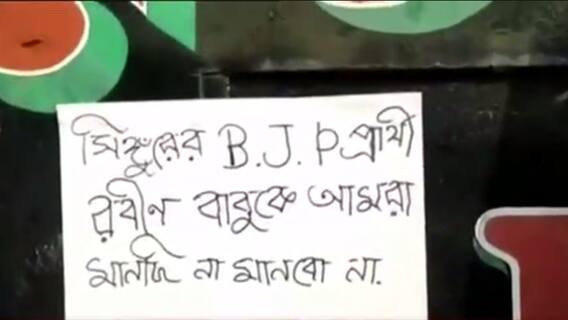 সিঙ্গুরের B.J.P প্রার্থী
রবীন বাবুকে আমরা
মানছি না মানবো না.